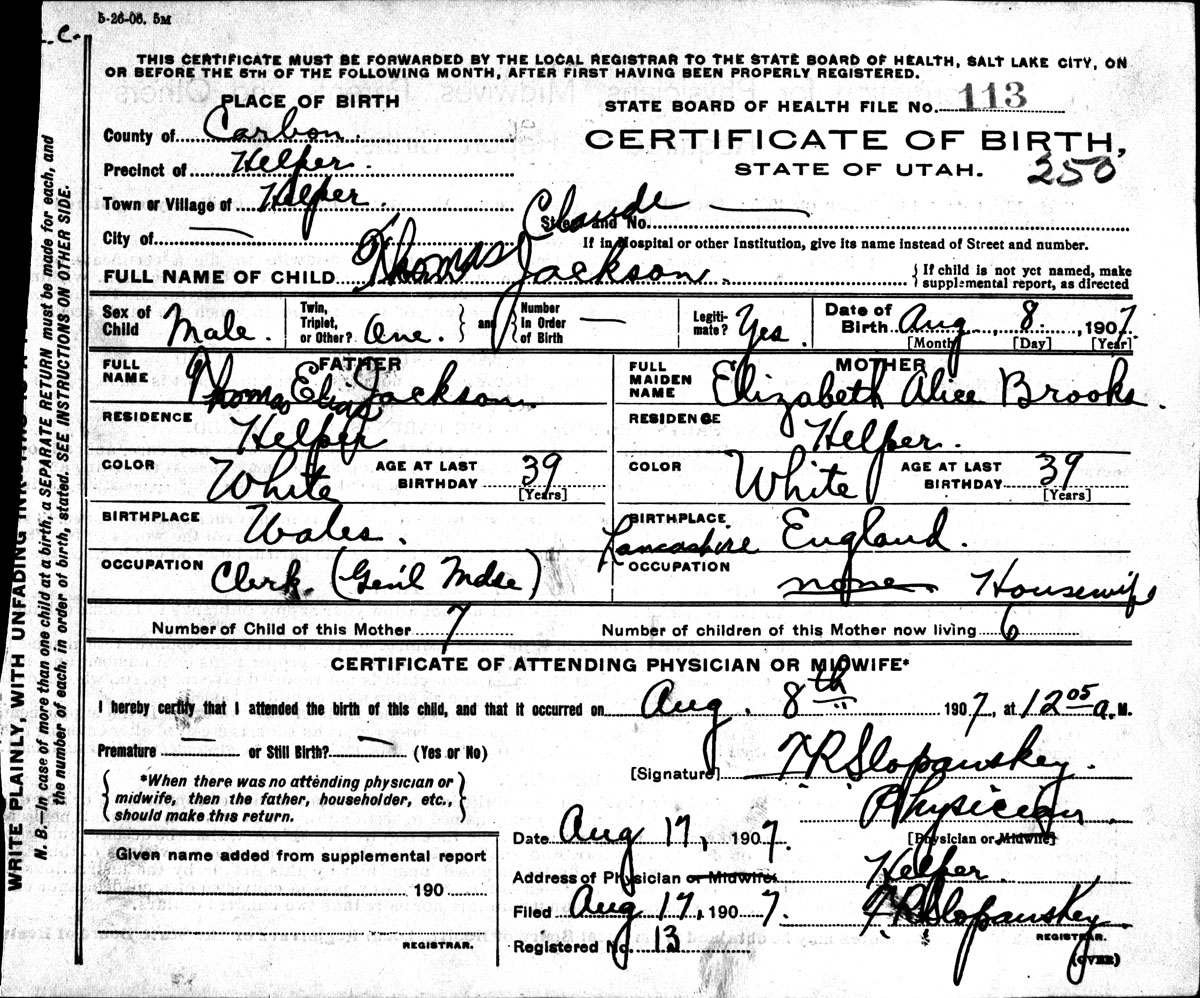 5-26-06. 5M
L. C.
THIS CERTIFICATE MUST BE FORWARDED BY THE LOCAL REGISTRAR TO THE STATE BOARD OF HEALTH, SALT LAKE CITY, ON
OR BEFORE THE 5TH OF THE FOLLOWING MONTH, AFTER FIRST HAVING BEEN PROPERLY REGISTERED.
PLACE OF BIRTH
STATE BOARD OF HEALTH FILE No. 113
County of Carbon.
CERTIFICATE OF BIRTH,
Precinct of Helper.
STATE OF UTAH. 250
Town or Village of Helper.
City of —
Street and No. —
If in Hospital or other Institution, give its name instead of Street and number.
FULL NAME OF CHILD Thomas Claude Jackson.
{ If child is not yet named, make
supplemental report, as directed
Sex of Child Male.
Twin, Triplet, or Other? One.
and
Number in Order of Birth —
Legiti-mate? Yes.
Date of Birth Aug 8. , 1907
[Month] [Day] [Year]
FATHER
FULL NAME Thomas Elias Jackson.
MOTHER
FULL MAIDEN NAME Elizabeth Alice Brooks.
RESIDENCE Helper
RESIDENCE Helper.
COLOR White
AGE AT LAST BIRTHDAY 39
[Years]
COLOR White
AGE AT LAST BIRTHDAY 39
[Years]
BIRTHPLACE Wales.
BIRTHPLACE Lancashire England.
OCCUPATION Clerk (Gen'l Mdse)
OCCUPATION none Housewife
Number of Child of this Mother 7
Number of children of this Mother now living 6
CERTIFICATE OF ATTENDING PHYSICIAN OR MIDWIFE*
I hereby certify that I attended the birth of this child, and that it occurred on Aug. 8th 1907, at 12 05 a. M.
Premature — or Still Birth? — (Yes or No)
[Signature] F R Slopanskey.
*When there was no attending physician or
midwife, then the father, householder, etc.,
should make this return.
Physician
[Physician or Midwife]
Date Aug 17, 1907.
Address of Physician or Midwife Helper.
Given name added from supplemental report
190
REGISTRAR.
Filed Aug 17, 1907.
F R Slopanskey
REGISTRAR.
Registered No. 13
(OVER)
WRITE PLAINLY, WITH UNFADING INK—THIS IS A
N. B.—In case of more than one child at a birth, a SEPARATE RETURN must be made for each, and
the number of each, in order of birth, stated. SEE INSTRUCTIONS ON OTHER SIDE.